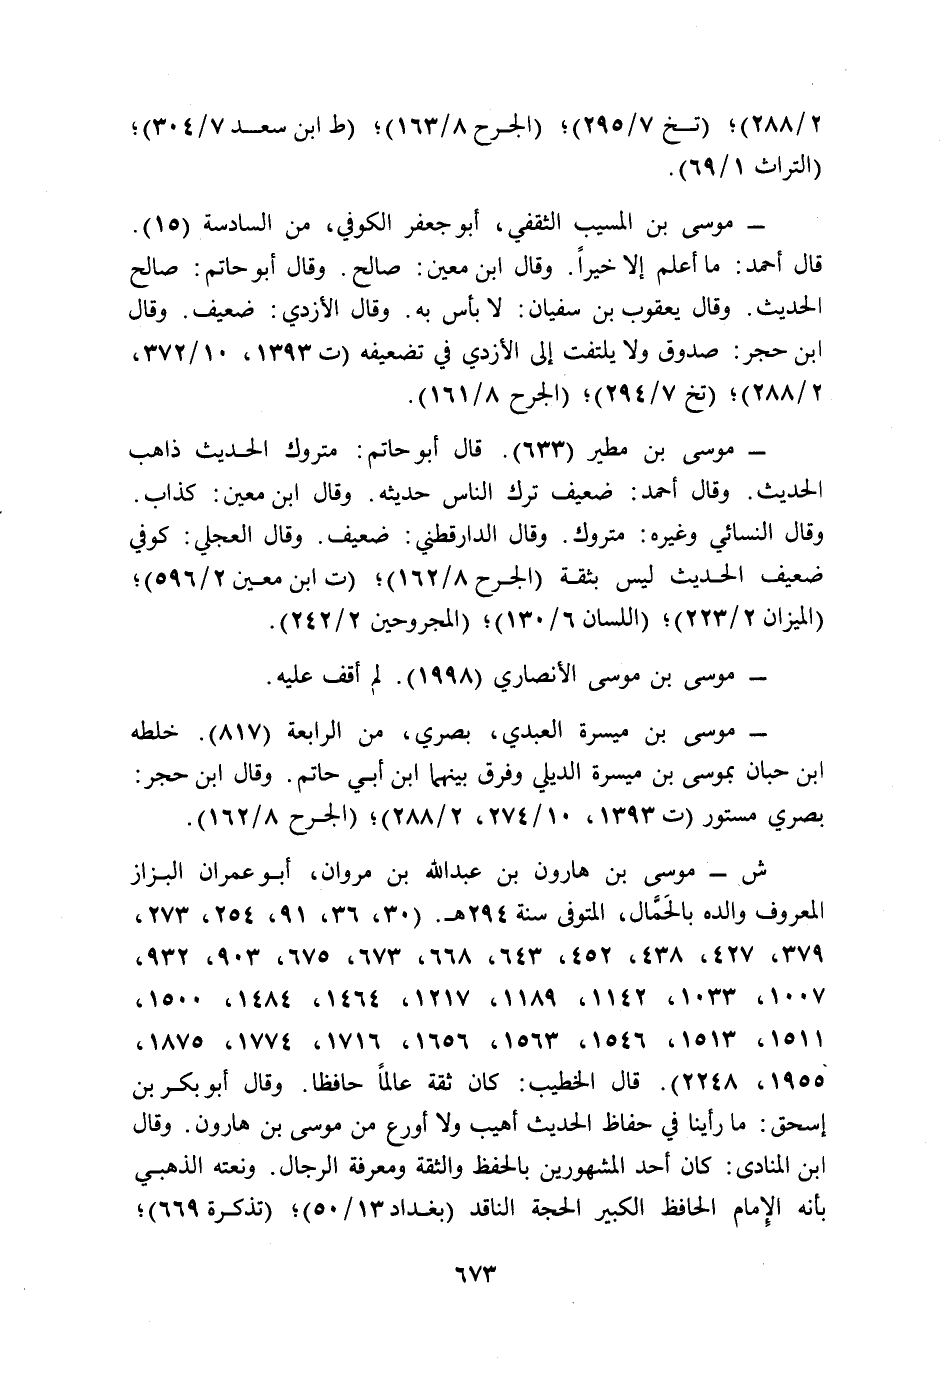 ٢٨٨/٢)؛ (تـخ ٢٩٥/٧)؛ (الجـرح ١٦٣/٨)؛ (ط ابن سعـد ٣٠٤/٧)؛
(التراث ٦٩/١).
ــ موسى بن المسيب الثقفي، أبو جعفر الكوفي، من السادسة (١٥).
قال أحمد: ما أعلم إلا خيراً. وقال ابن معين: صالح. وقال أبو حاتم: صالح
الحديث. وقال يعقوب بن سفيان: لا بأس به. وقال الأزدي: ضعيف. وقال
ابن حجر: صدوق ولا يلتفت إلى الأزدي في تضعيفه (ت ١٣٩٣، ٣٧٢/١٠،
٢٨٨/٢)؛ (تخ ٢٩٤/٧)؛ (الجرح ١٦١/٨).
ــ موسى بن مطير (٦٣٣). قال أبو حاتم: متروك الحـديث ذاهب
الحديث. وقال أحمد: ضعيف ترك الناس حديثه. وقال ابن معين: كذاب.
وقال النسائي وغيره: متروك. وقال الدارقطني: ضعيف. وقال العجلي: كوفي
ضعيف الحـديث ليس بثقـة (الجـرح ١٦٢/٨)؛ (ت ابن معـين ٥٩٦/٢)؛
(الميزان ٢٢٣/٢)؛ (اللسان ١٣٠/٦)؛ (المجروحين ٢٤٢/٢).
ــ موسى بن موسى الأنصاري (١٩٩٨). لم أقف عليه.
ــ موسى بن ميسرة العبدي، بصري، من الرابعة (٨١٧). خلطه
ابن حبان بموسى بن ميسرة الديلي وفرق بينهما ابن أبـي حاتم. وقال ابن حجر:
بصري مستور (ت ١٣٩٣، ٢٧٤/١٠، ٢٨٨/٢)؛ (الجـرح ١٦٢/٨).
ش ــ موسى بن هارون بن عبدالله بن مروان، أبـو عمران البـزاز
المعروف والده بالحَمَّال، المتوفى سنة ٢٩٤هـ. (٣٠، ٣٦، ٩١، ٢٥٤، ٢٧٣،
٣٧٩، ٤٢٧، ٤٣٨، ٤٥٢، ٦٤٣، ٦٦٨، ٦٧٣، ٦٧٥، ٩٠٣، ٩٣٢،
١٠٠٧، ١٠٣٣، ١١٤٢، ١١٨٩، ١٢١٧، ١٤٦٤، ١٤٨٤، ١٥٠٠،
١٥١١، ١٥١٣، ١٥٤٦، ١٥٦٣، ١٦٥٦، ١٧١٦، ١٧٧٤، ١٨٧٥،
١٩٥٥، ٢٢٤٨). قال الخطيب: كان ثقة عالماً حافظا. وقال أبو بكـر بن
إسحق: ما رأينا في حفاظ الحديث أهيب ولا أورع من موسى بن هارون. وقال
ابن المنادى: كان أحد المشهورين بالحفظ والثقة ومعرفة الرجال. ونعته الذهبـي
بأنه الإمام الحافظ الكبير الحجة الناقد (بغـداد ٥٠/١٣)؛ (تذكـرة ٦٦٩)؛
٦٧٣